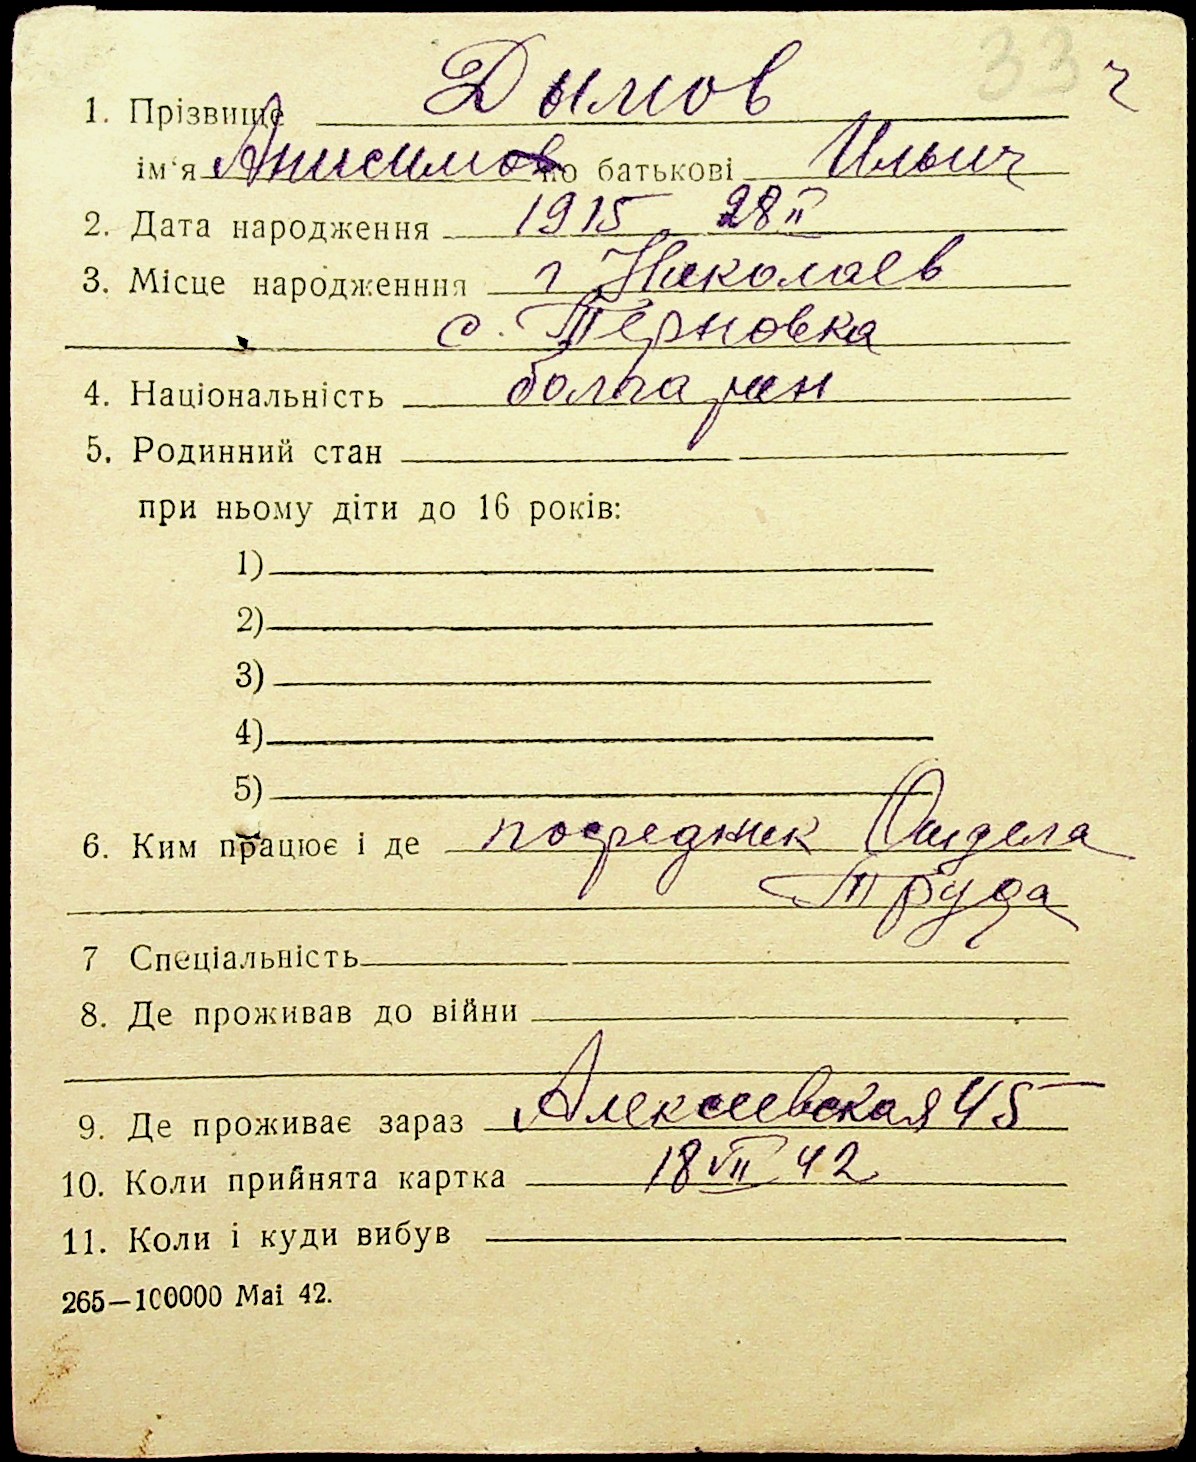 33 ч
1. Прізвище Дымов
ім'я Анисим по батькові Ильич
2. Дата народження 1915 28 II
3. Місце народженння г Николаев
с. Терновка
4. Національність болгарин
5. Родинний стан
при ньому діти до 16 років:
1)
2)
3)
4)
5)
6. Ким працює і де посредник Отдела
Труда
7 Спеціальність
8. Де проживав до війни
9. Де проживає зараз Алексеевская 45
10. Коли прийнята картка 18 VII 42
11. Коли і куди вибув
265—100000 Маі 42.